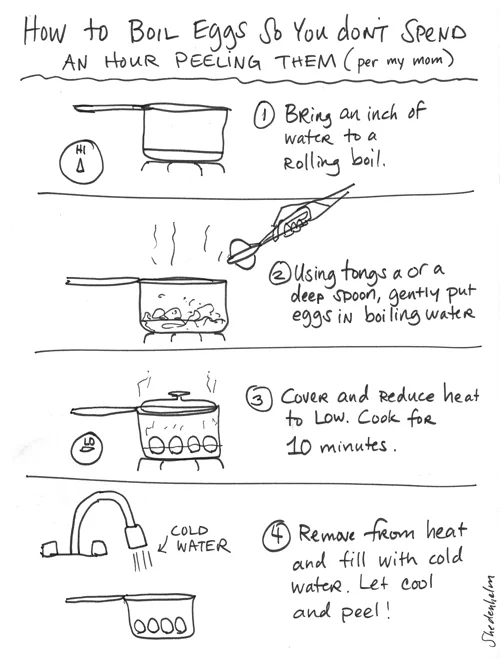 How to Boil Eggs So You don't Spend
an Hour Peeling Them (per my mom)
HI
1 Bring an inch of
water to a
Rolling boil.
2 Using tongs a or a
deep spoon, gently put
eggs in boiling water
LO
3 Cover and Reduce heat
to Low. Cook for
10 minutes.
COLD
WATER
4 Remove from heat
and fill with cold
water. Let cool
and peel!
Shedenhelm